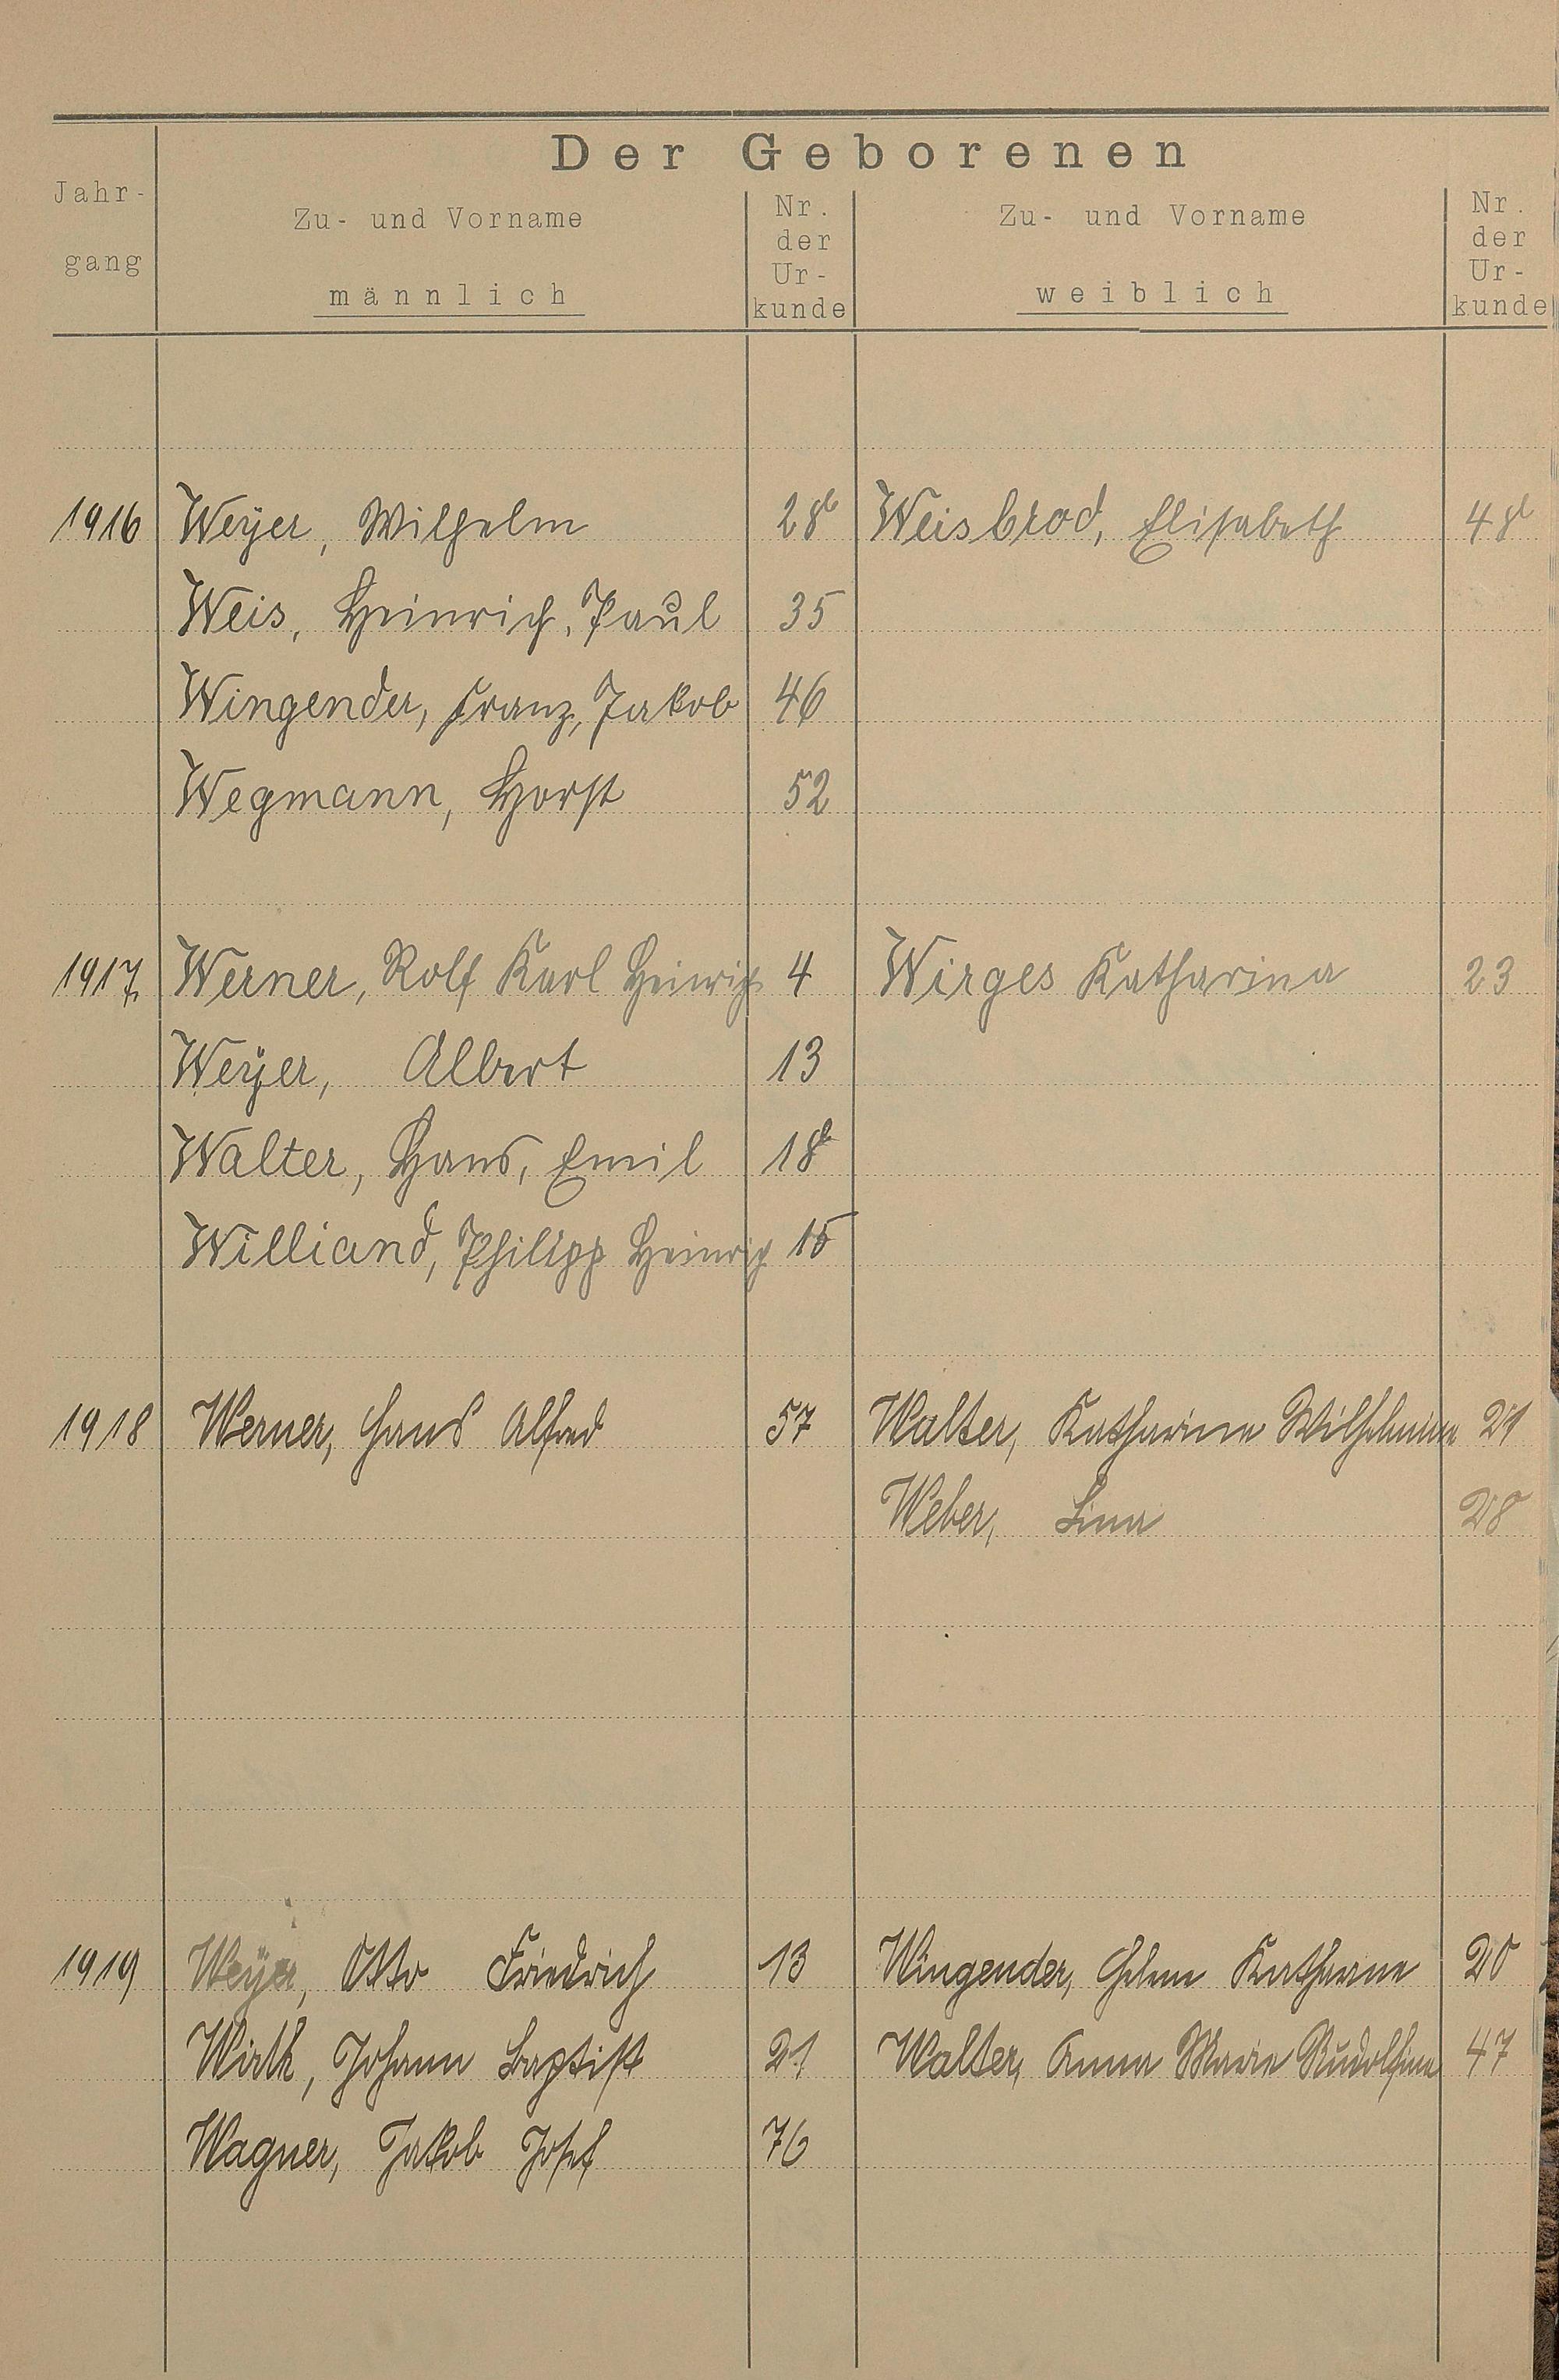 Der Geborenen
Jahrgang
Zu- und Vorname männlich
Nr. der Urkunde
Zu- und Vorname weiblich
Nr. der Urkunde
1916 Weÿer, Wilhelm 28 Weisbrod, Elisabeth 48
Weis, Heinrich, Paul 35
Wingender, Franz, Jakob 46
Wegmann, Horst 52
1917 Werner, Rolf Karl Heinrich 4 Wirges Katharina 23
Weÿer, Albert 13
Walter, Hans, Emil 18
Williand, Philipp Heinrich 15
1918 Werner, Hans Alfred 57 Walter, Katharina Wilhelmine 21
Weber, Lina 28
1919 Weÿer, Otto Friedrich 13 Wingender, Katharina 20
Wirth, Johann Baptist 21 Walter, Anna Maria Rudolfine 47
Wagner, Jakob Josef 76